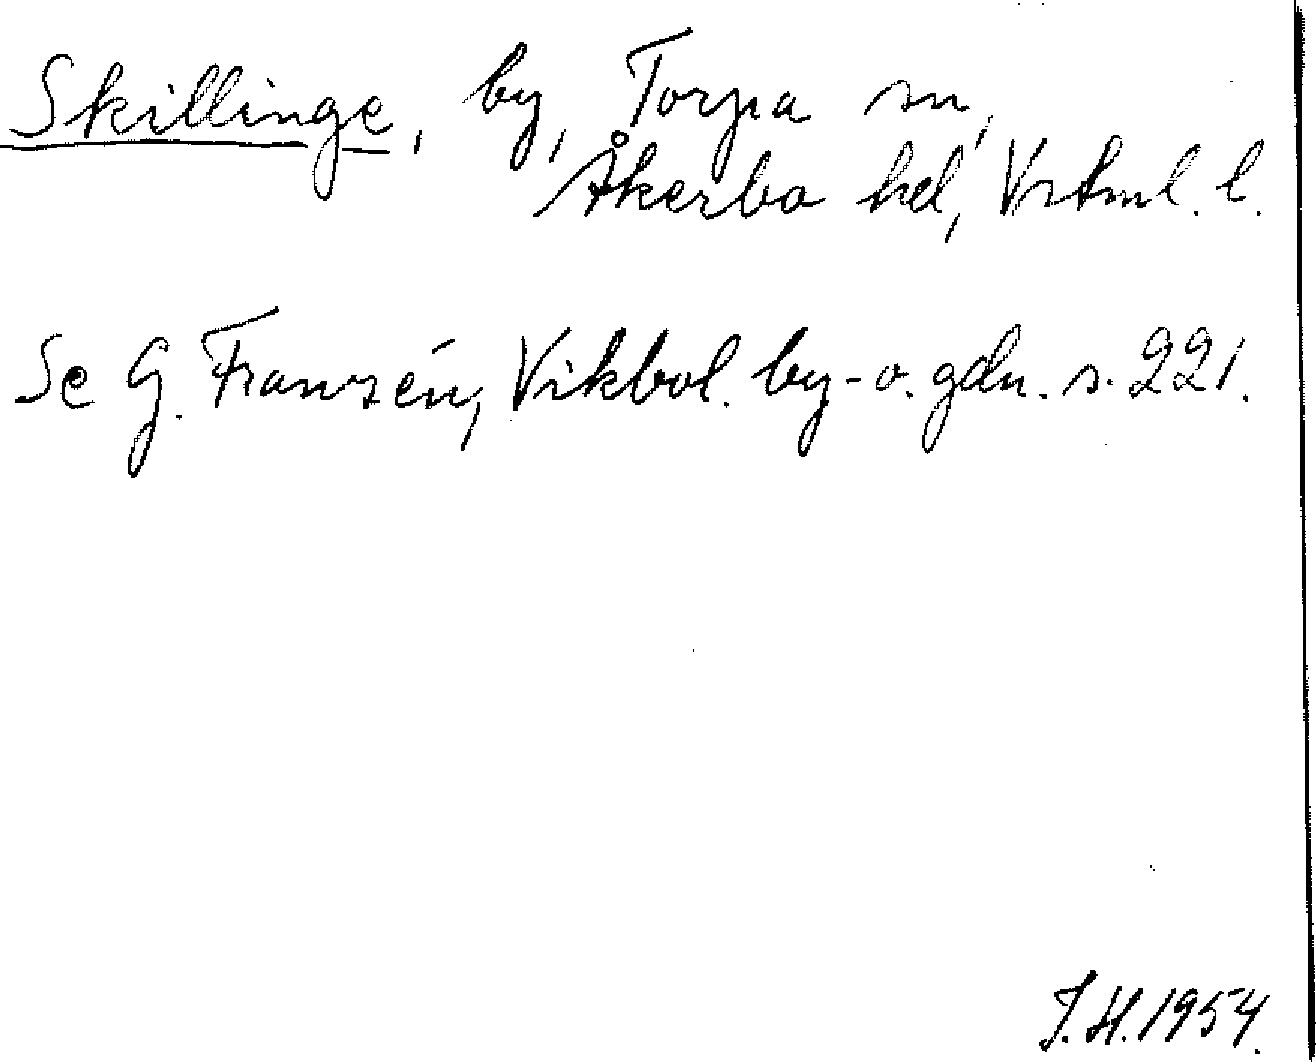 Skillinge, by, Torpa sn,
Åkerbo hd, Vstml. l.
Se G. Franzén, Vikbol. by- o. gdn. s. 221.
J.H. 1954.